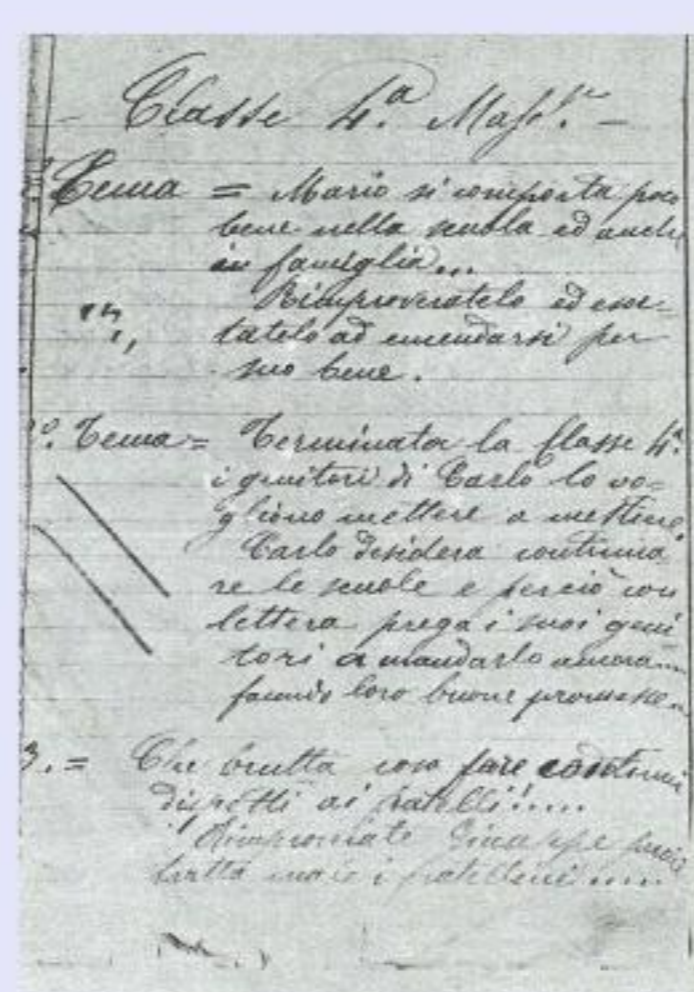 - Classe 4.ª Masc.le -
Tema = Mario si comporta poco
bene nella scuola ed anche
in famiglia...
Rimproveratelo ed esor-
tatelo ad emendarsi per
suo bene.
2º. Tema = Terminata la Classe 4ª.
i genitori di Carlo lo vo=
gliono mettere a mestiere.
Carlo desidera continua
re le scuole e perciò con
lettera prega i suoi geni
tori a mandarlo ancora...
facendo loro buone promesse..
3. = Che brutta cosa fare continui
dispetti ai fratelli!....
Rimproverate Giuseppe perciò
tratta male i fratellini.....